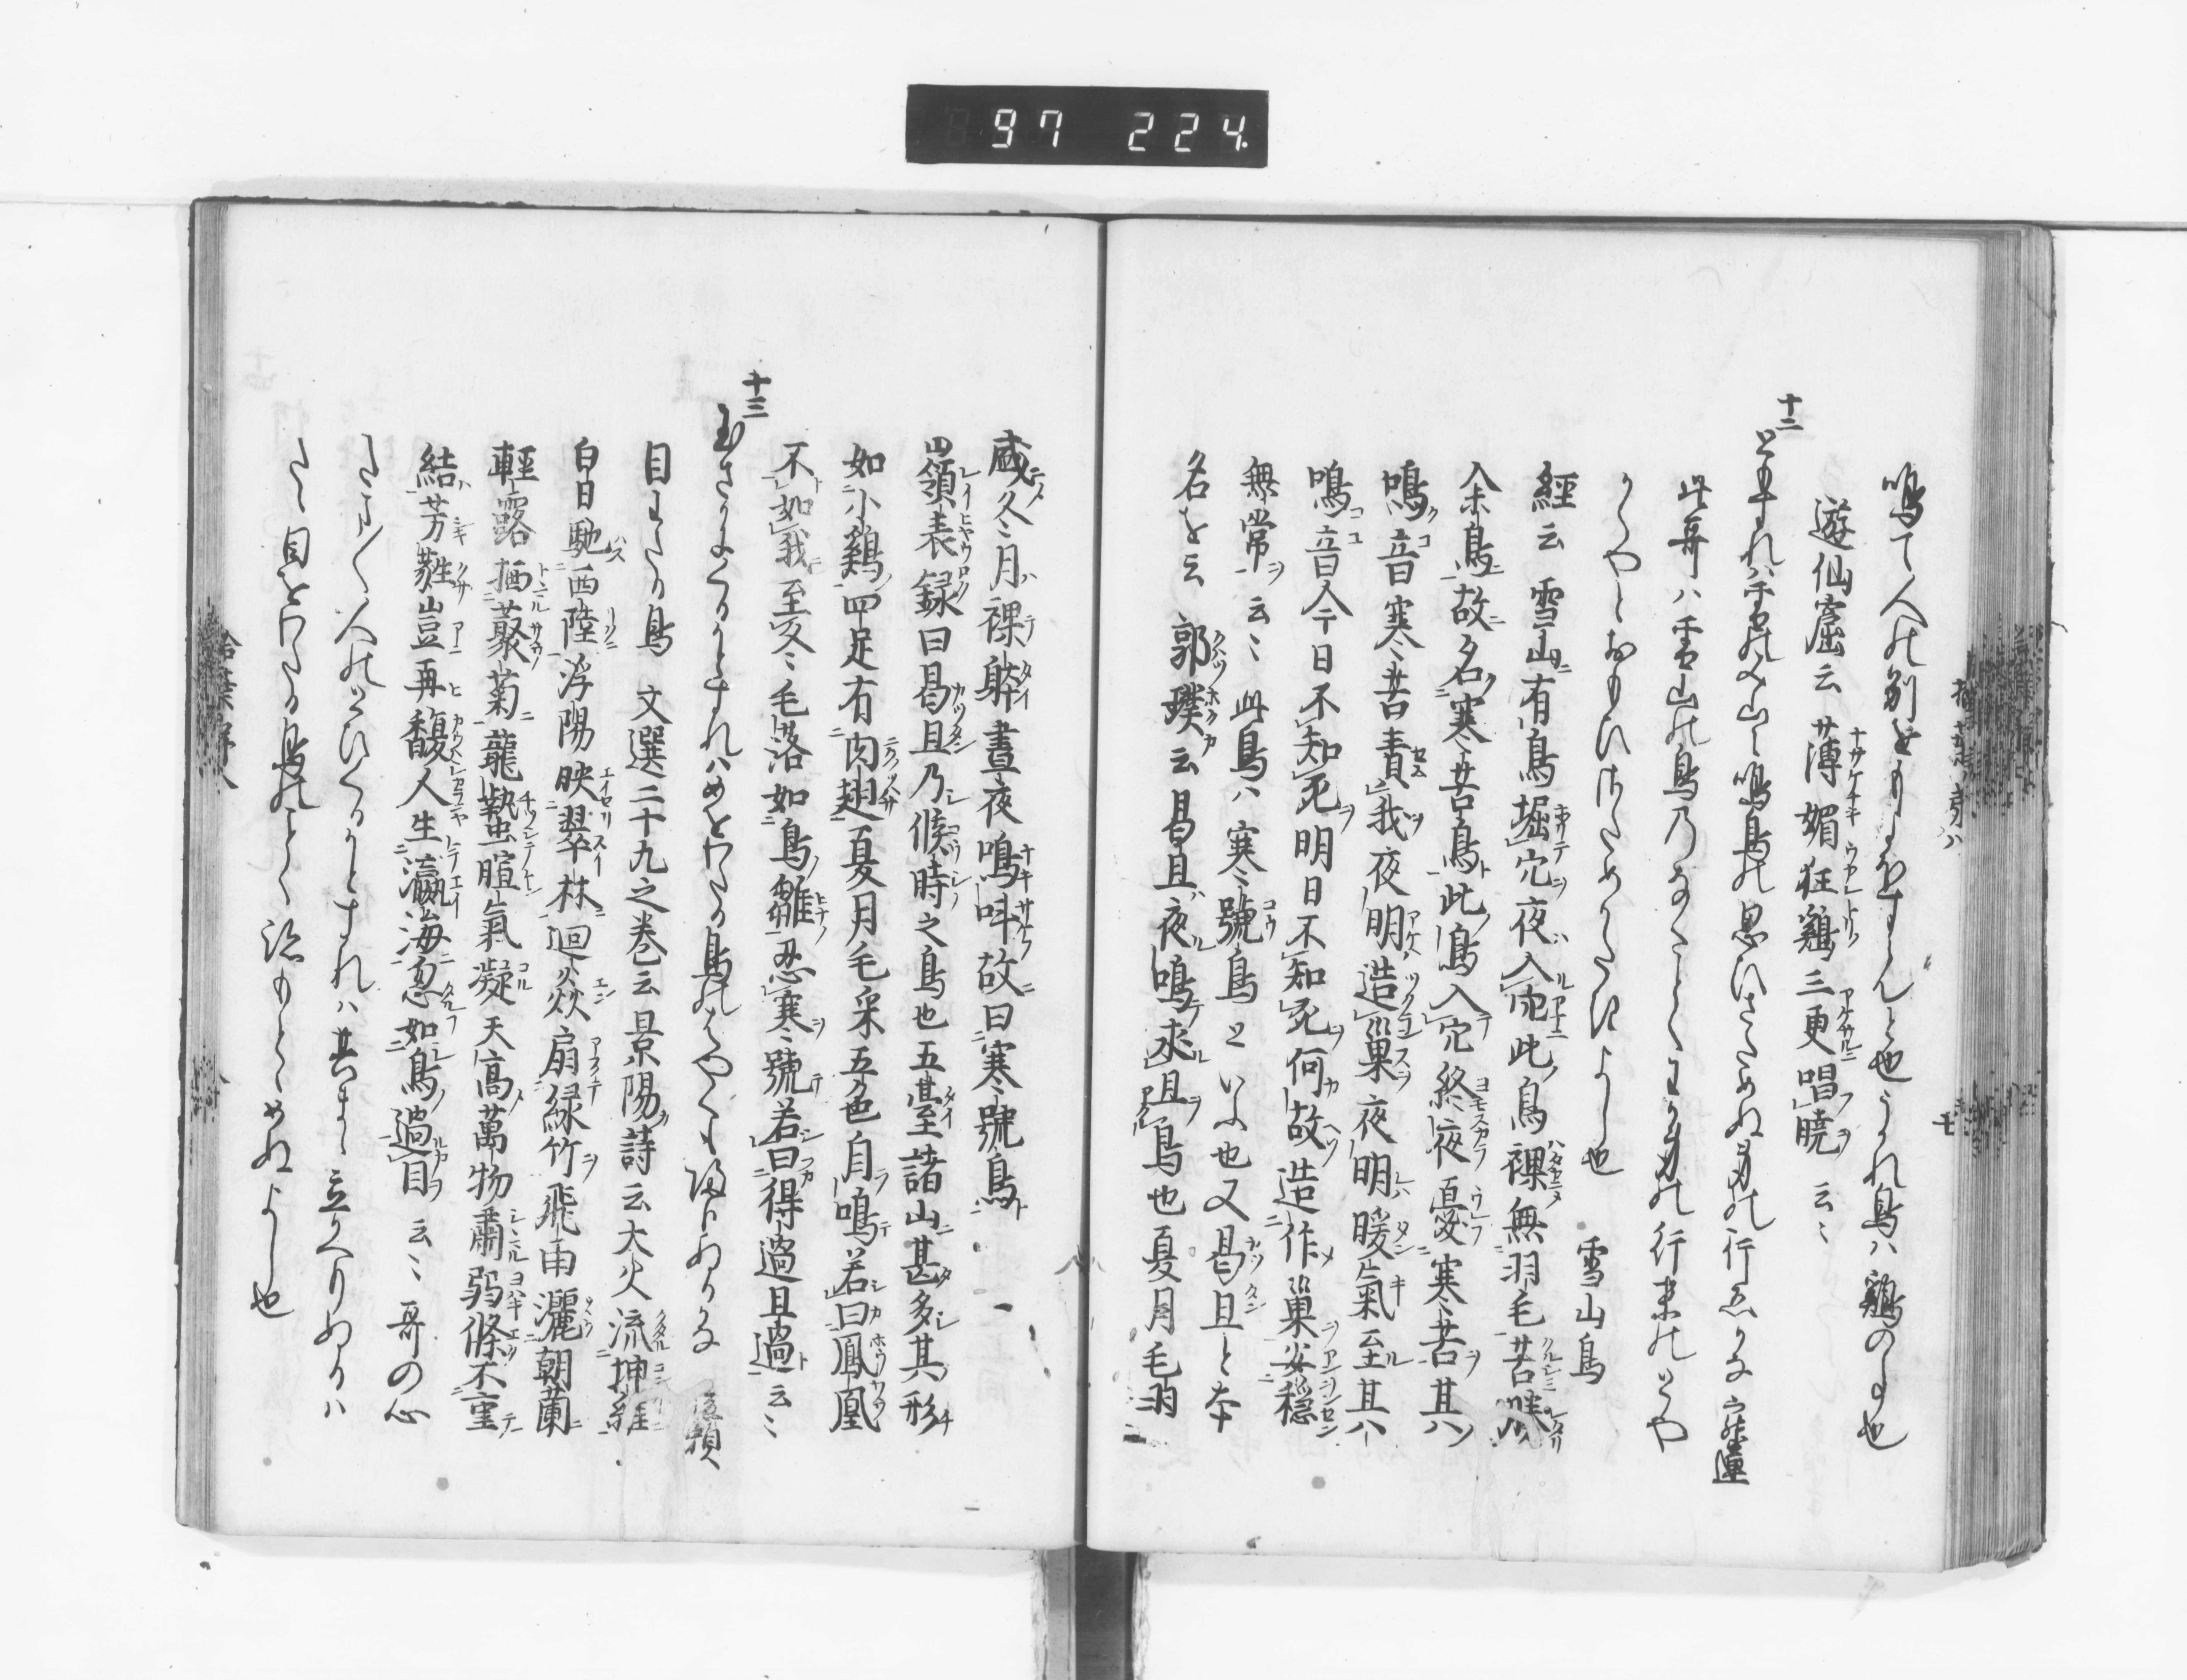 97 224
鳴て人の別をもよほすらんと也うかれ鳥ハ鶏の事也
遊仙窟云 薄媚狂鶏三更唱暁 云〻
十二
とすれハ雪のみ山に鳴鳥の思ひさためぬ身の行ゑかな
此哥ハ雪山の鳥乃なくことくわか身の行末のとや
かくやとおもひさためかたきよし也 雪山鳥
經云 雪山有鳥堀穴夜入穴此鳥裸無羽毛苦勝
余鳥故名寒苦鳥此鳥入穴終夜憂寒苦其
鳴音寒苦責我夜明造巣夜明暖氣至其
鳴音今日不知死明日不知死何故造作巣安穏
無常云〻 此鳥ハ寒號鳥といふ也又曷旦と本
名を云 郭璞云曷旦夜鳴求旦鳥也夏月毛羽
盛冬月裸躰晝夜鳴叫故曰寒號鳥
嶺表録曰曷旦乃候時之鳥也五臺諸山甚多其形
如小鶏四足有肉翅夏月毛采五色自鳴若曰鳳凰
不如我至冬毛落如鳥雛忍寒號若曰得過且過云〻
十三
玉さかにくるとすれハめをわたる鳥のはやくも帰りぬるかな
目わたる鳥 文選二十九之巻云景陽詩云大火流坤維
白日馳西陸浮陽映翠林迴焱扇緑竹飛雨灑朝蘭
輕露栖叢菊龍蟄暄氣凝天高萬物肅弱條不重
結芳蕤豈再馥人生瀛海忽如鳥過目云〻 哥の心
たま〳〵人のとひくるとすれハ其まゝ立かへりぬるハ
たゝ目をわたる鳥のことく
よし也